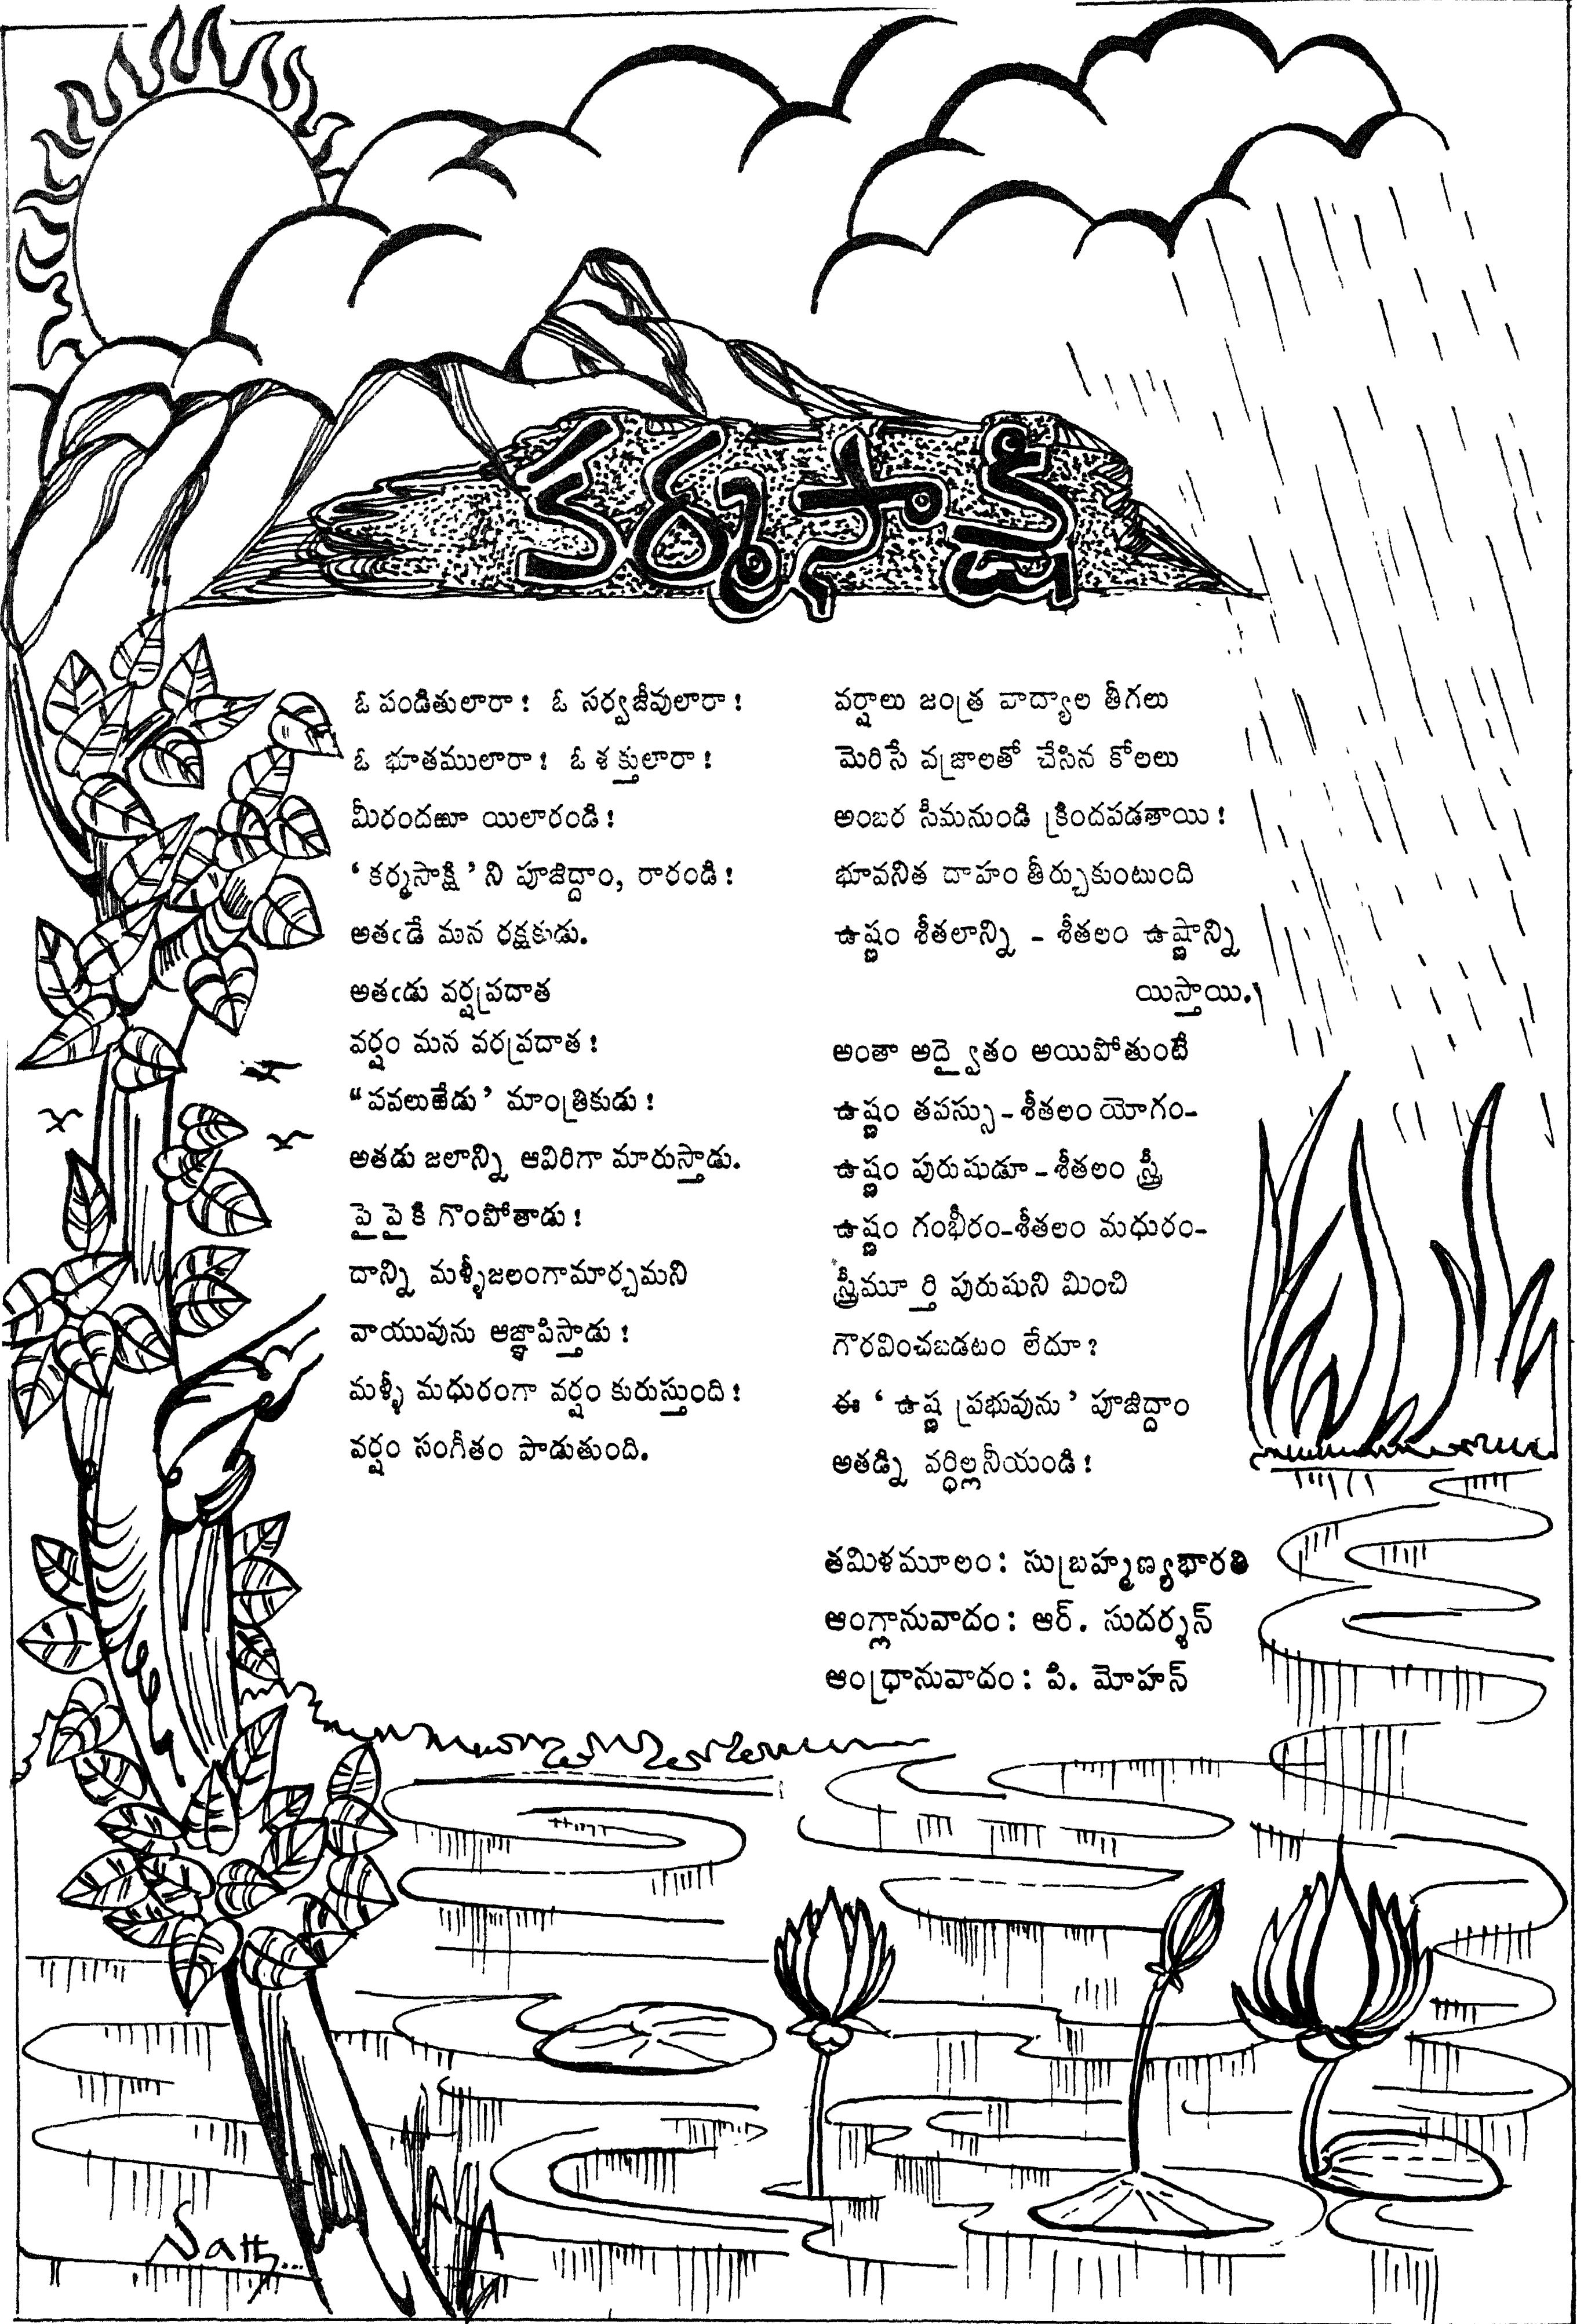 కర్మసాక్షి
ఓ పండితులారా! ఓ సర్వజీవులారా!
ఓ భూతములారా! ఓ శక్తులారా!
మీరందఱూ యిలారండి!
‘కర్మసాక్షి’ ని పూజిద్దాం, రారండి!
అతఁడే మన రక్షకుడు.
అతఁడు వర్షప్రదాత
వర్షం మన వరప్రదాత!
“పవలుఱేడు’ మాంత్రికుడు!
అతడు జలాన్ని ఆవిరిగా మారుస్తాడు.
పైపైకి గొంపోతాడు!
దాన్ని మళ్ళీజలంగామార్చమని
వాయువును ఆజ్ఞాపిస్తాడు!
మళ్ళీ మధురంగా వర్షం కురుస్తుంది!
వర్షం సంగీతం పాడుతుంది.
వర్షాలు జంత్ర వాద్యాల తీగలు
మెరిసే వజ్రాలతో చేసిన కోలలు
అంబర సీమనుండి క్రిందపడతాయి!
భూవనిత దాహం తీర్చుకుంటుంది
ఉష్ణం శీతలాన్ని - శీతలం ఉష్ణాన్ని
యిస్తాయి.
అంతా అద్వైతం అయిపోతుంటే
ఉష్ణం తపస్సు-శీతలం యోగం-
ఉష్ణం పురుషుడూ-శీతలం స్త్రీ
ఉష్ణం గంభీరం-శీతలం మధురం-
స్త్రీమూర్తి పురుషుని మించి
గౌరవించబడటం లేదూ?
ఈ ‘ఉష్ణ ప్రభువును’ పూజిద్దాం
అతడ్ని వర్ధిల్లనీయండి!
తమిళమూలం: సుబ్రహ్మణ్యభారతి
ఆంగ్లానువాదం: ఆర్. సుదర్శన్
ఆంధ్రానువాదం: పి. మోహన్
Nath...